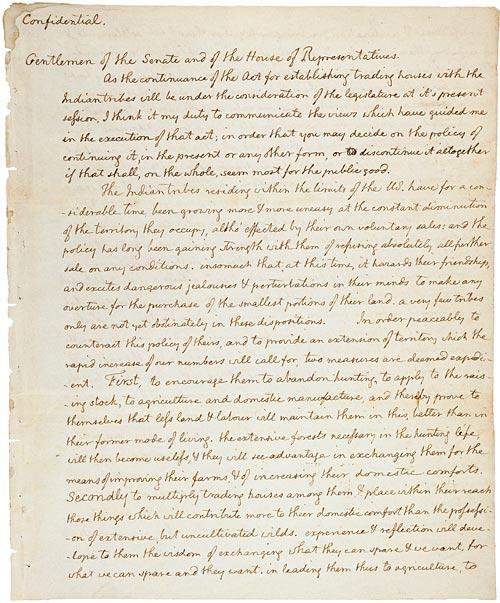 Confidential.
Gentlemen of the Senate and of the House of Representatives.
As the continuance of the Act for establishing trading houses with the
Indian tribes will be under the consideration of the legislature at it's present
session, I think it my duty to communicate the views which have guided me
in the execution of that act; in order that you may decide on the policy of
continuing it, in the present or any other form, or to discontinue it altogether
if that shall, on the whole, seem most for the public good.
The Indian tribes residing within the limits of the U.S. have for a con-
-siderable time been growing more & more uneasy at the constant diminution
of the territory they occupy, altho' effected by their own voluntary sales: and the
policy has long been gaining strength with them of refusing absolutely all further
sale on any conditions. insomuch that at this time, it hazards their friendship,
and excites dangerous jealousies & perturbations in their minds to make any
overture for the purchase of the smallest portions of their land. a very few tribes
only are not yet obstinately in these dispositions. In order peaceably to
counteract this policy of theirs, and to provide an extension of territory which the
rapid increase of our numbers will call for, two measures are deemed expedi-
-ent. First, to encourage them to abandon hunting, to apply to the rais-
-ing stock, to agriculture and domestic manufacture, and thereby prove to
themselves that less land & labour will maintain them in this, better than in
their former mode of living. the extensive forests necessary in the hunting life,
will then become useless, & they will see advantage in exchanging them for the
means of improving their farms, & of increasing their domestic comforts.
Secondly to multiply trading houses among them & place within their reach
those things which will contribute more to their domestic comfort than the possessi-
-on of extensive, but uncultivated wilds. experience & reflection will deve-
-lope to them the wisdom of exchanging what they can spare & we want, for
what we can spare and they want. in leading them thus to agriculture, to